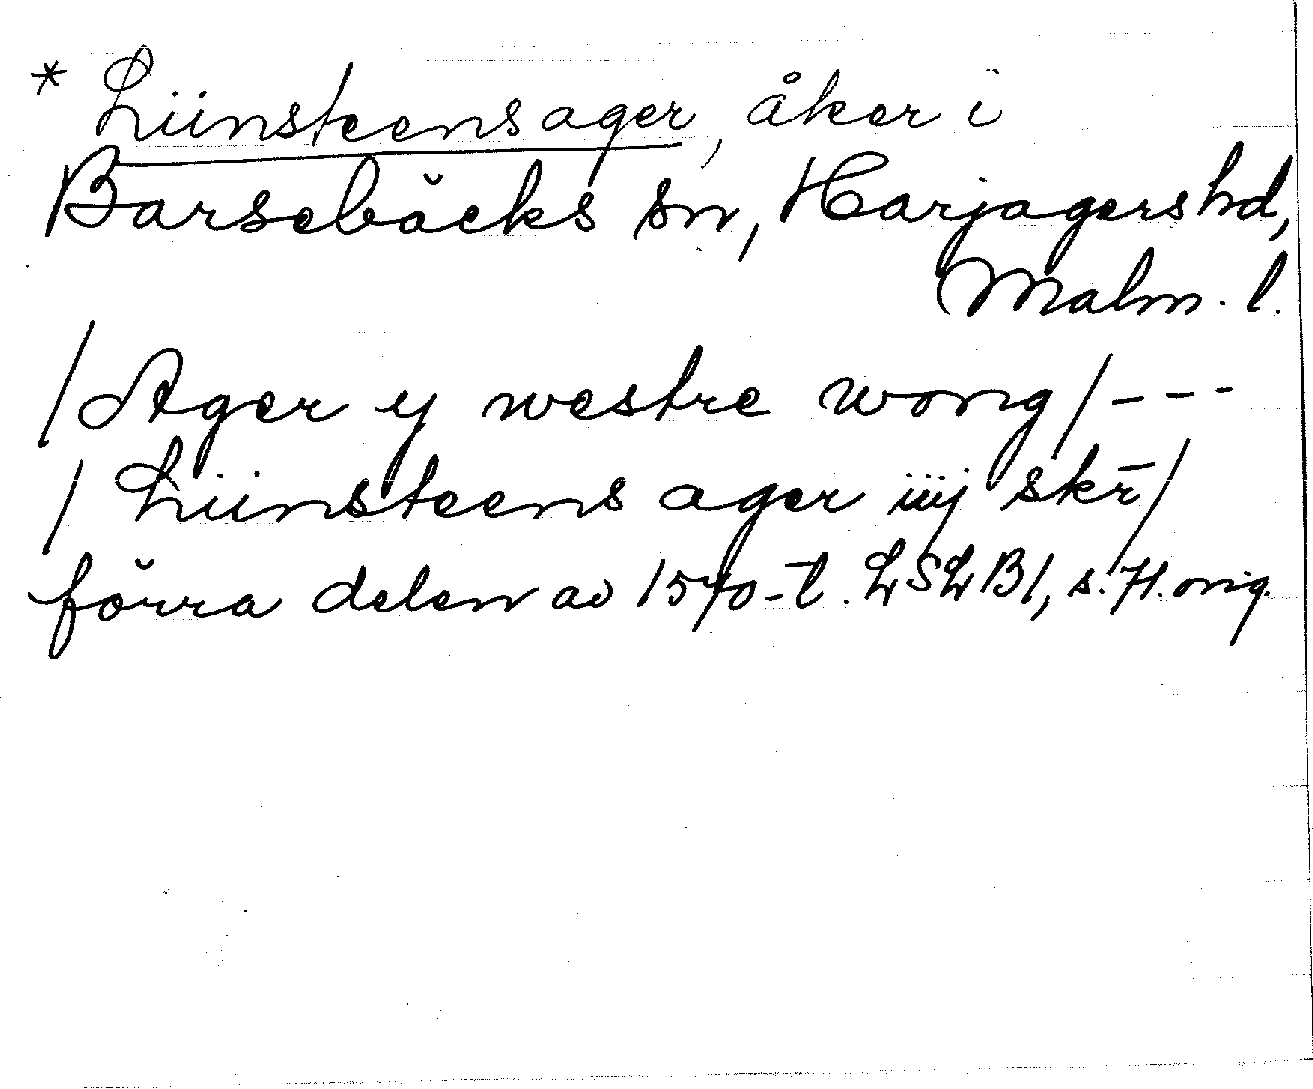 * Liinsteensager, åker i
Barsebäcks sn, Harjagers hd,
Malm. l.
/Ager y westre wong/ ---
/Liinsteens ager iiij skr̄/
förra delen av 1570-t. LSLB1, s. 71. orig.